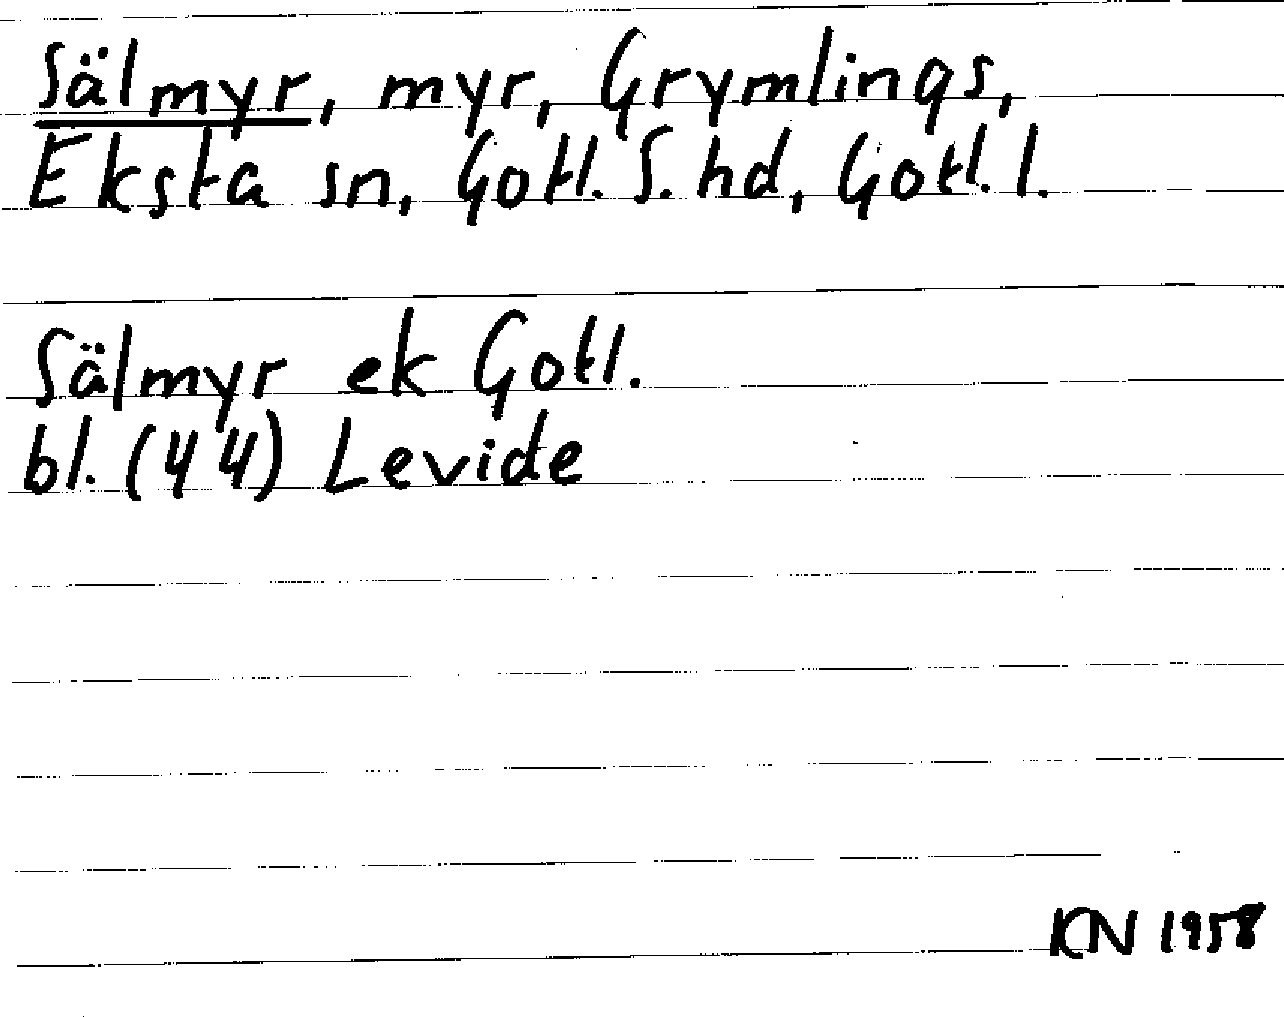 Sälmyr, myr, Grymlings,
Eksta sn, Gotl. S. hd, Gotl. l.
Sälmyr ek Gotl.
bl. (44) Levide
KN 1958